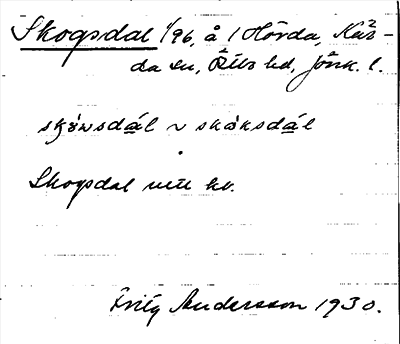 Skogsdal 1/96, å 1 Hörda, Kår-
da sn, Östbo hd, Jönk. l.
skowsdál ~ skoksdál
Skogsdal nttt hv.
Fritz Andersson 1930.